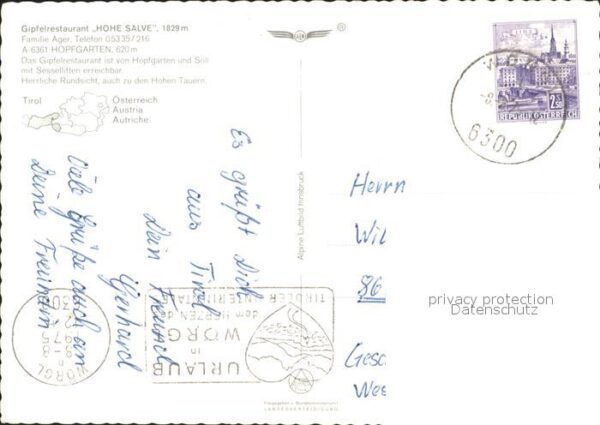 Gipfelrestaurant „HOHE SALVE", 1829 m
Familie Ager, Telefon 05335/216
A-6361 HOPFGARTEN, 620 m
Das Gipfelrestaurant ist von Hopfgarten und Söll
mit Sesselliften erreichbar.
Herrliche Rundsicht, auch zu den Hohen Tauern.
Tirol
Österreich
Austria
Autriche
Es grüßt Dich
aus Tirol
Dein Freund
Gerhard
Viele Grüße auch an
Deine Freundin
Alpine Luftbild Innsbruck
2.50
REPUBLIK ÖSTERREICH
6300
Herrn
Wil
86
Gesc
Wes
privacy protection
Datenschutz
URLAUB
in
WÖRGL
dem HERZEN der
TIROLER UNTERINNTALE
WÖRGL
1975
LANDESVERTEIDIGUNG